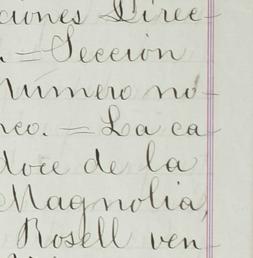 ciones Direc-
. = Sección
Número no-
nco. = La ca-
doce de la
Magnolia,
Rosell ven-